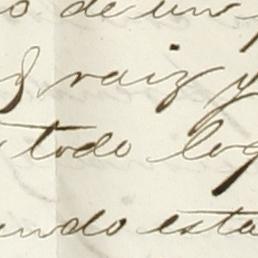 o de un
raiz y
todo log
endo esta